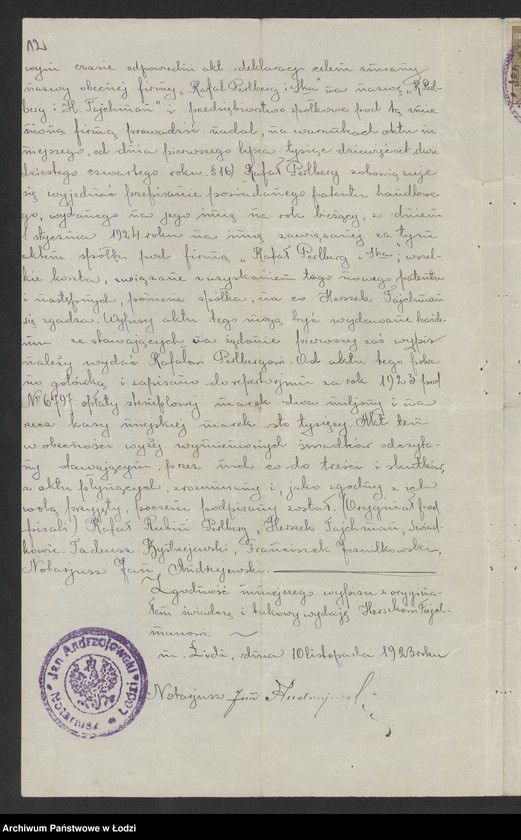 12
wym czasie odpowiedni akt deklaracji celem zmiany
nazwy obecnej firmy „Rafał Perlberg i S-ka" na nazwę „R. Perl-
berg i H. Tajchman" i przedsiębiorstwo spółkowe pod tą zmie
nioną firmą prowadzić nadal, na warunkach aktu ni
niejszego, od dnia pierwszego lipca tysiąc dziewięćset dwu
dziestego czwartego roku. § 16) Rafał Perlberg zobowiązuje
się wyjednać przepisanie posiadanego patentu handlowe
go, wydanego na jego imię na rok bieżący, z dniem
1 stycznia 1924 roku na imię zawiązanej za tym
aktem spółki pod firmą „Rafał Perlberg i S-ka"; wszel-
kie koszta, związane z uzyskaniem tego nowego patentu
i następnych, poniesie spółka, na co Herszek Tajchman
się zgadza. Wypisy aktu tego mogą być wydawane każde-
mu ze stawających na żądanie pierwszy zaś wypis
należy wydać Rafałowi Perlbergowi. Od aktu tego pobra
no gotówką i zapisano do repertorjum za rok 1923 pod
№ 6797 opłaty stemplowej marek dwa miljony i na
rzecz kasy miejskiej marek sto tysięcy. Akt ten
w obecności wyżej wymienionych świadków odczyta-
ny stawającym, przez nich co do treści i skutków,
z aktu płynących, zrozumiany i, jako zgodny z ich
wolą przyjęty, poczem podpisany został. (Oryginał pod
pisali) Rafał Rubin Perlberg, Herszek Tajchman, świad
kowie: Tadeusz, Franciszek
Notarjusz Jan Andrzejewski.
Zgodność niniejszego wypisu z orygina-
łem świadczę i takowy wydaję Herszkowi Tajch-
manowi.
m. Łódź, dnia 10 listopada 1923 roku
Notarjusz Jan Andrzejewski
Jan Andrzejewski
Notarjusz w Łodzi
Archiwum Państwowe w Łodzi